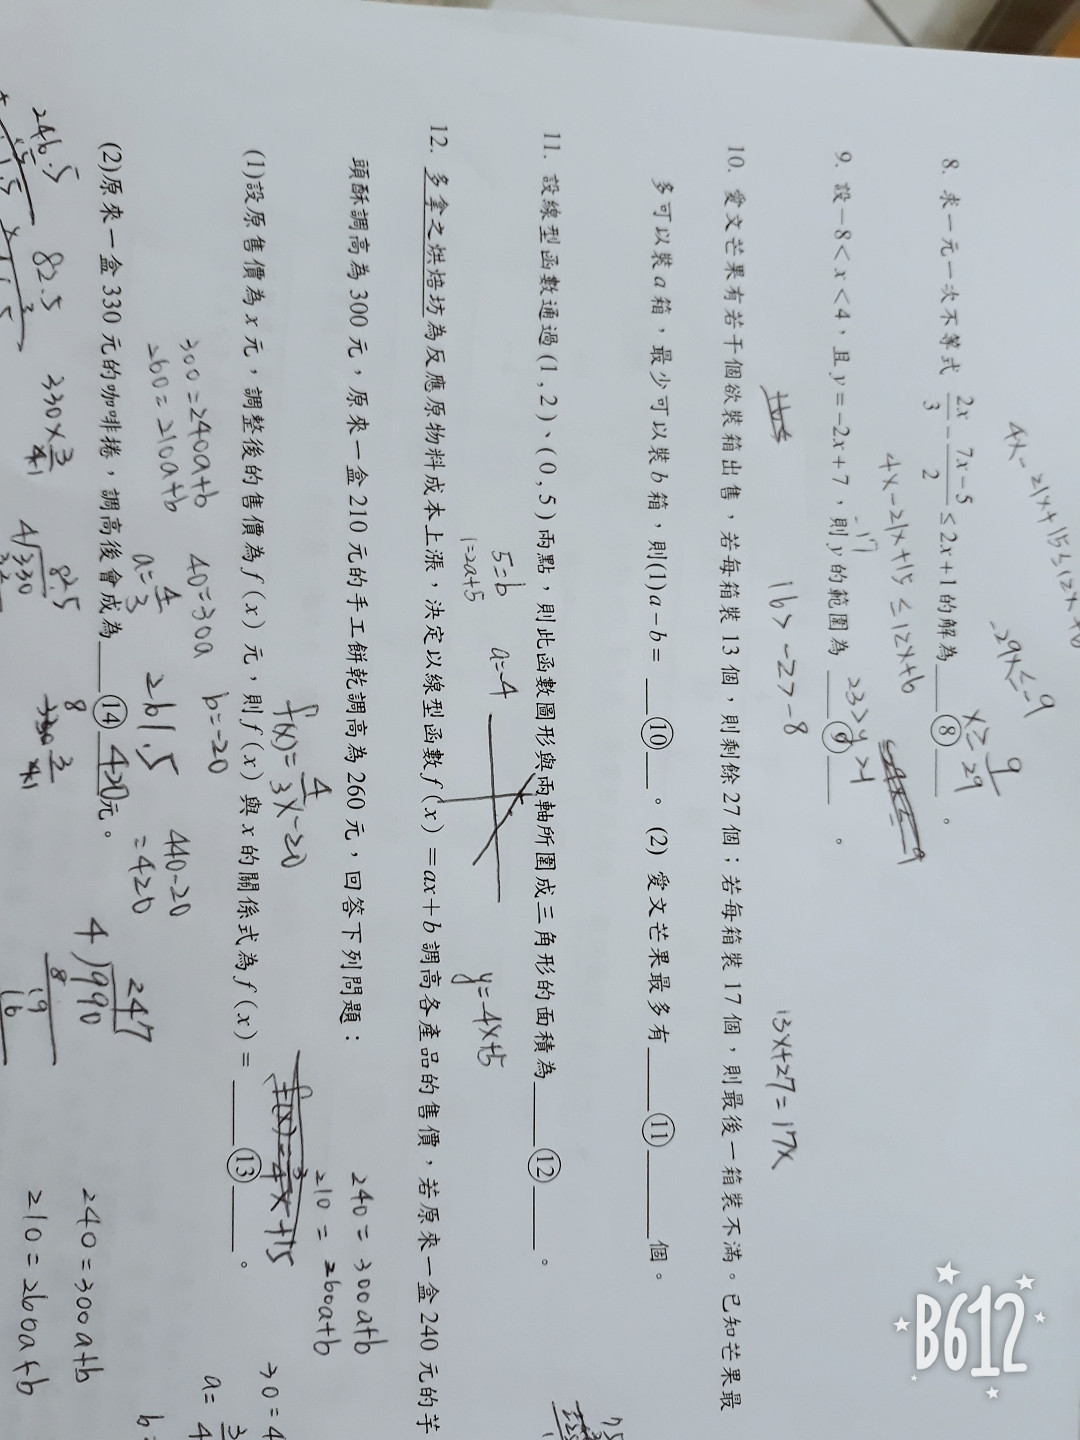 4x-21x+15≤12x+6
-29x≤-9
x≥9/29
8. 求一元一次不等式 2x/3 - 7x-5/2 ≤2x+1的解為 ⑧ 。
4x-21x+15≤12x+6
9. 設-8<x<4,且y=-2x+7,則y的範圍為 ⑨ 。
23>y>-1
16>-2>-8
13x+27=17x
10. 愛文芒果有若干個欲裝箱出售,若每箱裝13個,則剩餘27個;若每箱裝17個,則最後一箱裝不滿。已知芒果最
多可以裝a箱,最少可以裝b箱,則(1)a-b= ⑩ 。(2) 愛文芒果最多有 ⑪ 個。
11. 設線型函數通過(1,2)、(0,5)兩點,則此函數圖形與兩軸所圍成三角形的面積為 ⑫ 。
5=b
1=a+5
a=-4
y=-4x+5
12. 多拿之烘焙坊為反應原物料成本上漲,決定以線型函數f(x)=ax+b調高各產品的售價,若原來一盒240元的芋
頭酥調高為300元,原來一盒210元的手工餅乾調高為260元,回答下列問題:
240=300a+b
210=260a+b
f(x)=4/3x-20
(1)設原售價為x元,調整後的售價為f(x)元,則f(x)與x的關係式為f(x)= ⑬ 。
300=240a+b
260=210a+b
40=300a
a=4/3
b=-20
261.5
440-20
=420
(2)原來一盒330元的咖啡捲,調高後會成為 ⑭ 420元。
246.5
82.5
240=300a+b
210=260a+b
B612